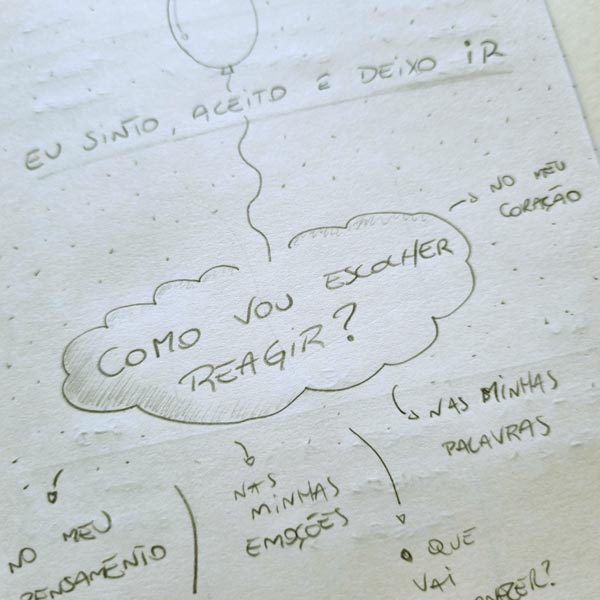 EU SINTO, ACEITO E DEIXO IR
NO MEU
CORAÇÃO
COMO VOU ESCOLHER
REAGIR?
NAS MINHAS
PALAVRAS
NAS
MINHAS
EMOÇÕES
NO MEU
PENSAMENTO
O QUE
VAI